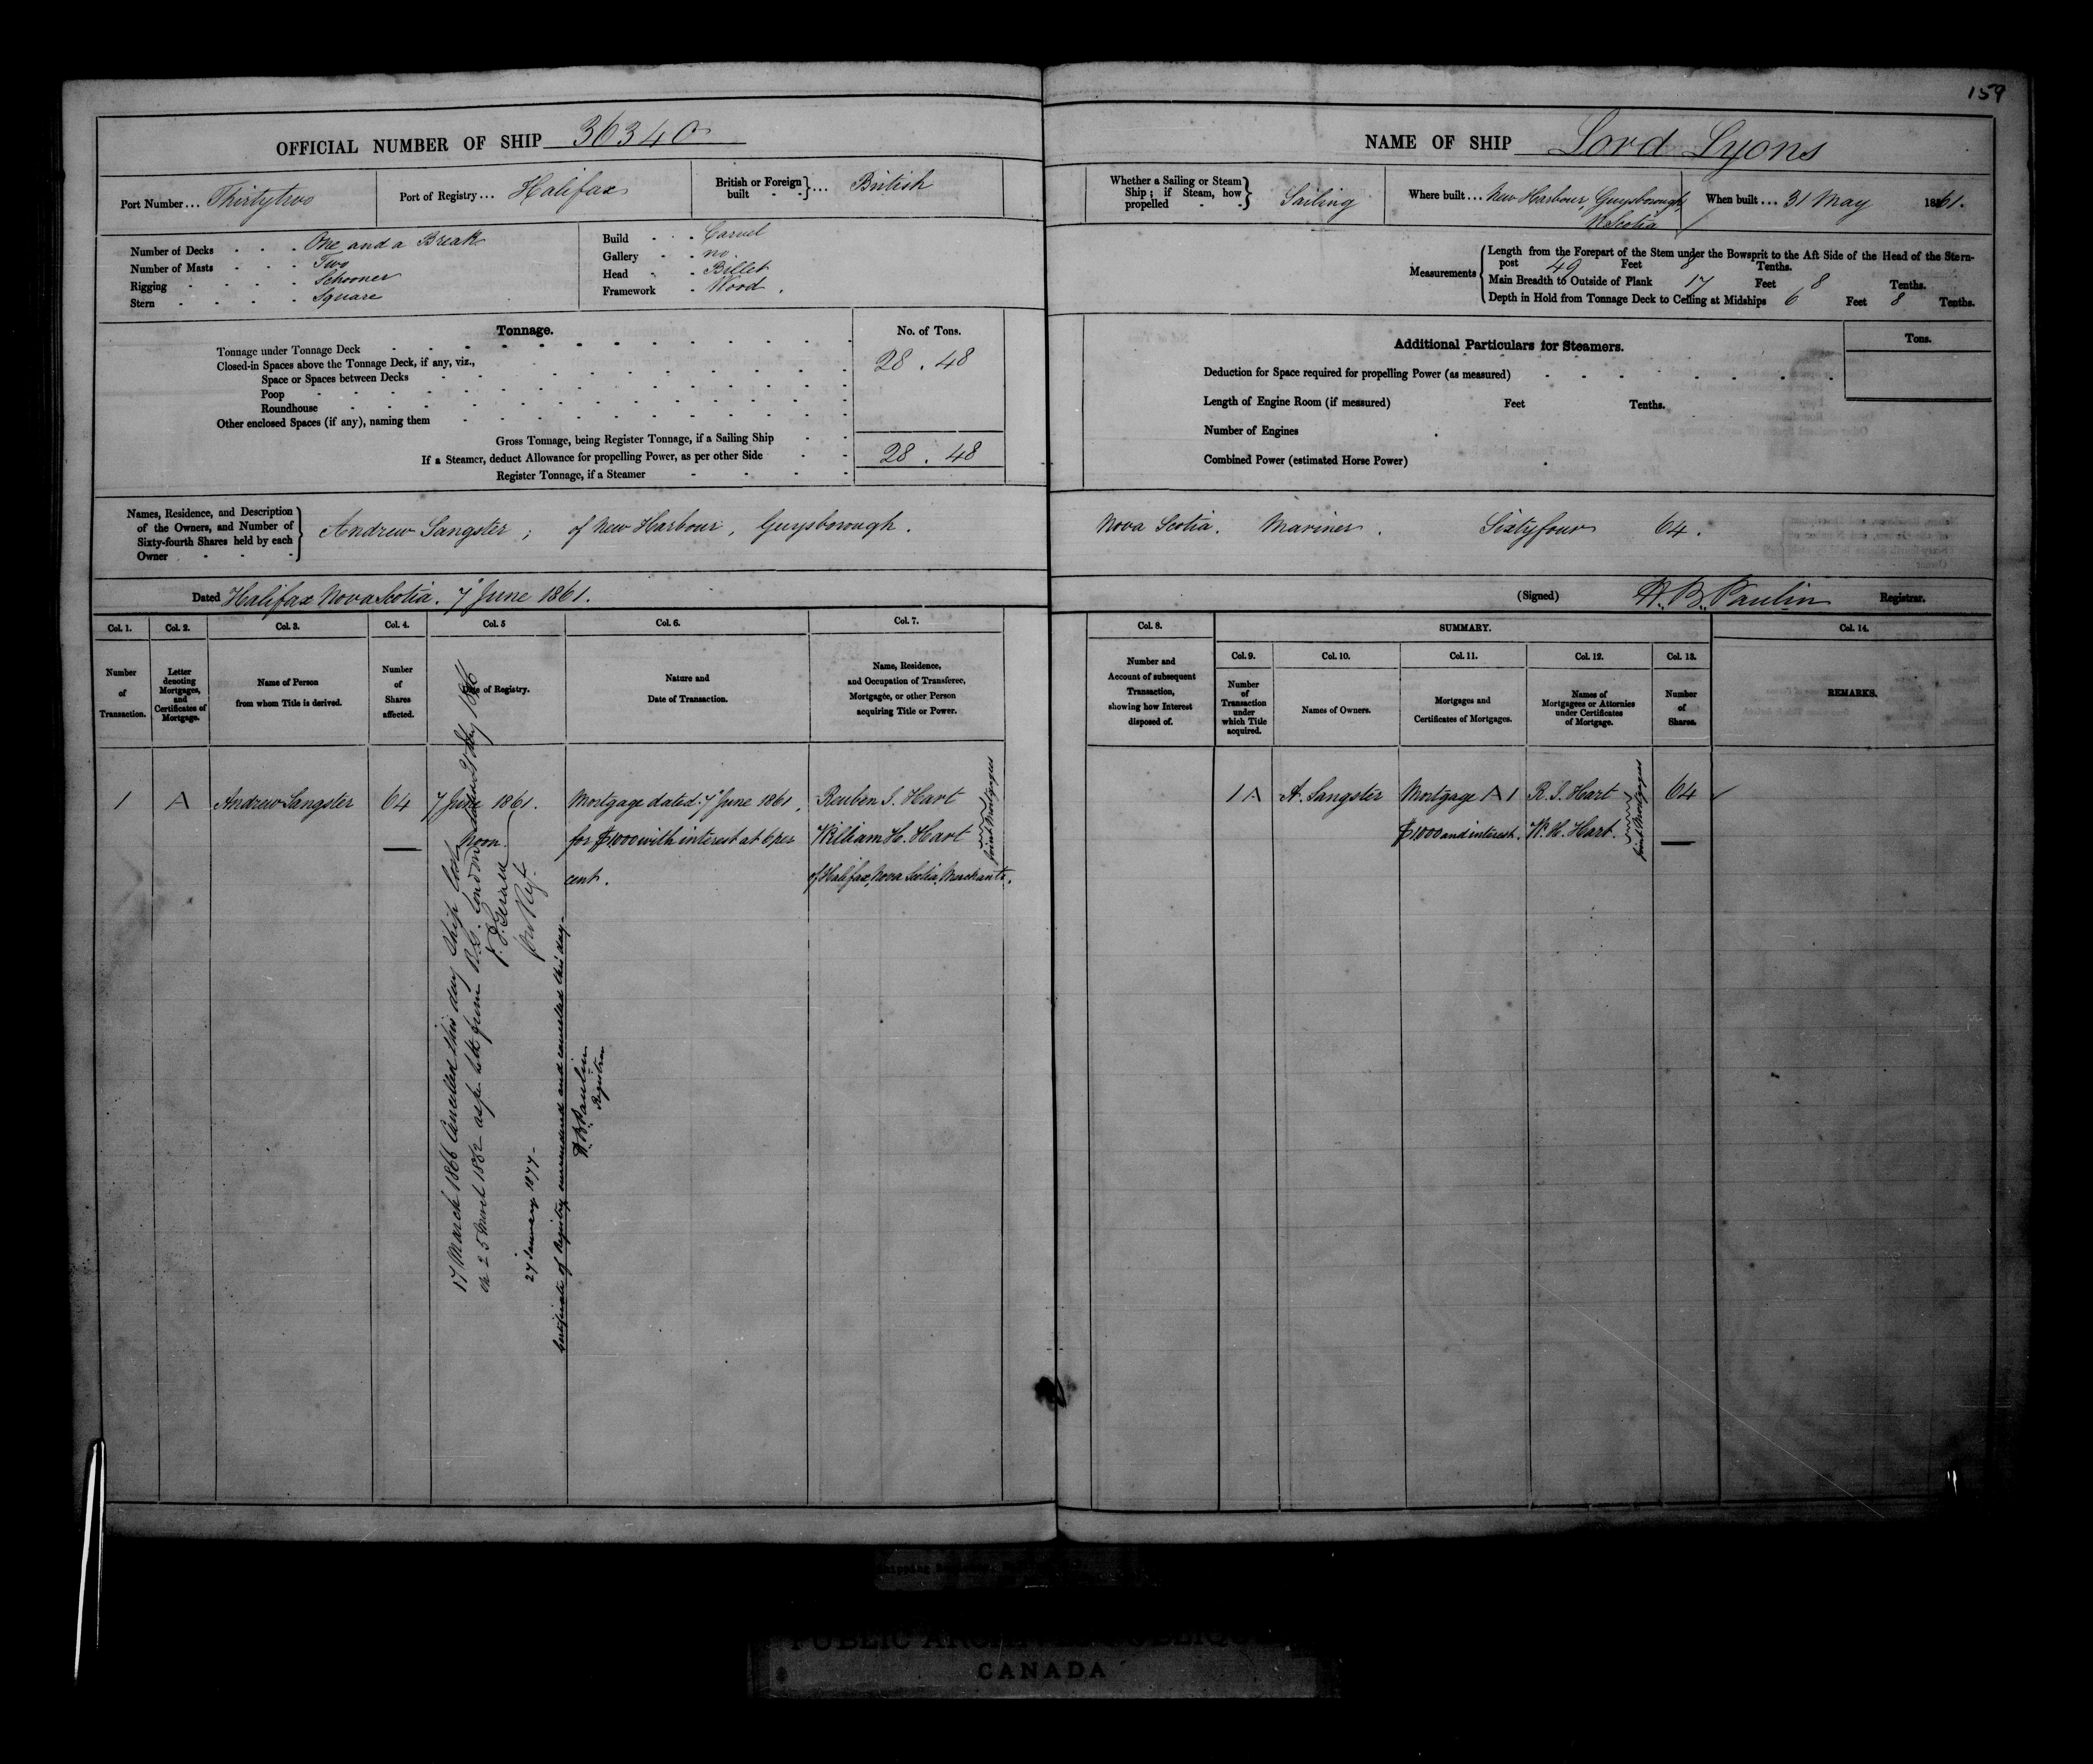 159
OFFICIAL NUMBER OF SHIP 36340
NAME OF SHIP Lord Lyons
Port Number... Thirtytwo
Port of Registry... Halifax
British or Foreign built - - }... British
Whether a Sailing or Steam Ship; if Steam, how propelled - - } Sailing
Where built... New Harbour, Guysborough, N. Scotia
When built... 31 May 1861.
Number of Decks - - - One and a Break
Number of Masts - - - Two
Rigging - - - - Schooner
Stern - - - - Square
Build - - Carvel
Gallery - - no.
Head - - Billet
Framework - Wood.
Measurements { Length from the Forepart of the Stem under the Bowsprit to the Aft Side of the Head of the Stern-
post 49 Feet 8 Tenths.
Main Breadth to Outside of Plank 17 Feet 8 Tenths.
Depth in Hold from Tonnage Deck to Ceiling at Midships 6 Feet 8 Tenths.
Tonnage.
No. of Tons.
Tonnage under Tonnage Deck 28.48
Closed-in Spaces above the Tonnage Deck, if any, viz.,
Space or Spaces between Decks
Poop
Roundhouse
Other enclosed Spaces (if any), naming them
Gross Tonnage, being Register Tonnage, if a Sailing Ship
28.48
If a Steamer, deduct Allowance for propelling Power, as per other Side
Register Tonnage, if a Steamer
Additional Particulars for Steamers.
Tons.
Deduction for Space required for propelling Power (as measured)
Length of Engine Room (if measured) Feet Tenths.
Number of Engines
Combined Power (estimated Horse Power)
Names, Residence, and Description of the Owners, and Number of Sixty-fourth Shares held by each Owner
Andrew Sangster; of New Harbour, Guysborough. Nova Scotia. Mariner. Sixtyfour 64.
Dated Halifax Nova Scotia. 7 June 1861.
(Signed) H. B. Paulin Registrar.
Col. 1.
Number of Transaction.
Col. 2.
Letter denoting Mortgages, and Certificates of Mortgage.
Col. 3.
Name of Person from whom Title is derived.
Col. 4.
Number of Shares affected.
Col. 5
Date of Registry.
Col. 6.
Nature and Date of Transaction.
Col. 7.
Name, Residence, and Occupation of Transferee, Mortgagee, or other Person acquiring Title or Power.
Col. 8.
Number and Account of subsequent Transaction, showing how Interest disposed of.
SUMMARY.
Col. 9.
Number of Transaction under which Title acquired.
Col. 10.
Names of Owners.
Col. 11.
Mortgages and Certificates of Mortgages.
Col. 12.
Names of Mortgagees or Attornies under Certificates of Mortgage.
Col. 13.
Number of Shares.
Col. 14.
REMARKS.
1 A Andrew Sangster 64 7 June 1861. Mortgage dated 7 June 1861, Reuben I. Hart
noon for $1000 with interest at 6 per William H. Hart
cent. of Halifax, Nova Scotia, Merchants.
Joint Mortgagees
1 A A. Sangster Mortgage A 1 R. I. Hart 64
$1000 and interest. W. H. Hart.
Joint Mortgagees
17 March 1866 Cancelled this day Ship lost
on 25 March 1862 as per letter from London dated
27 January 1877-
Certificate of Registry surrendered and cancelled this day-
H. B. Paulin
Registrar
PUBLIC ARCHIVES PUBLIQUES
CANADA